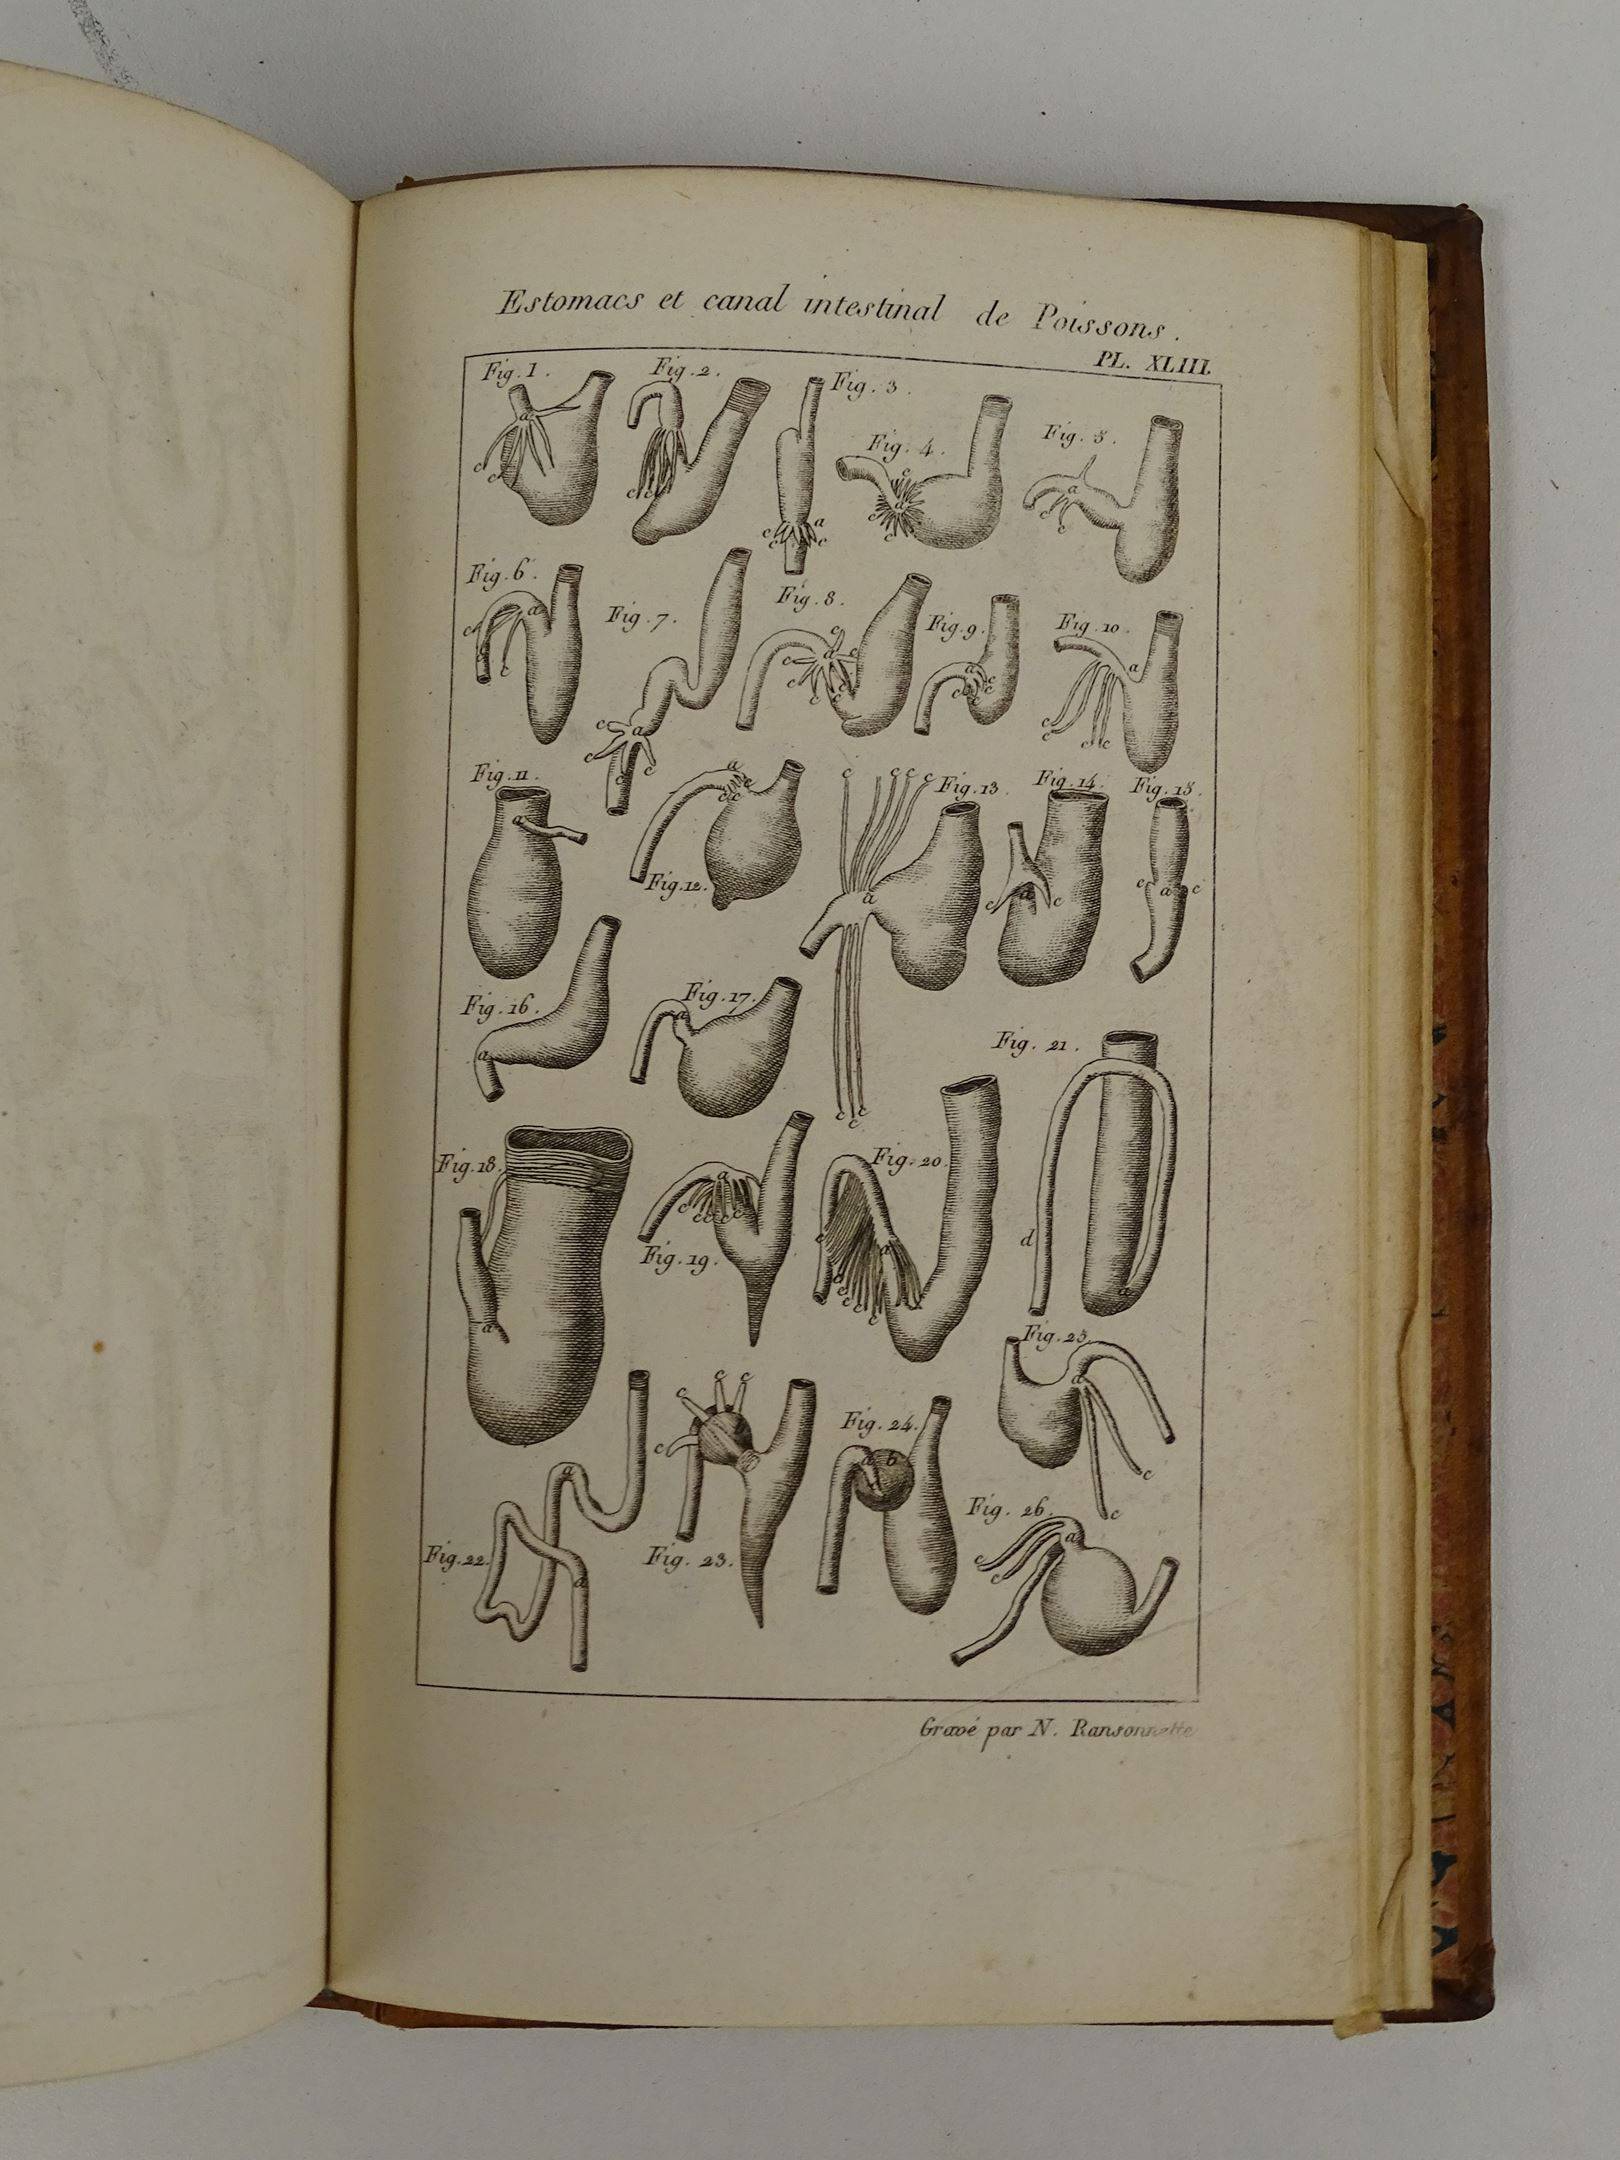 Estomacs et canal intestinal de Poissons.
PL. XLIII.
Fig. 1.
a
c
c
Fig. 2.
c
c
Fig. 3.
a
c
c
c
Fig. 4.
c
a
c
c
Fig. 5.
a
c
c
Fig. 6.
a
c
c
c
Fig. 7.
c
a
c
c
c
Fig. 8.
c
a
c
c
c
c
c
Fig. 9.
a
c
c
c
Fig. 10.
a
c
c
c
Fig. 11.
a
Fig. 12.
a
c
c
c
Fig. 13.
c
c
c
c
a
c
c
c
Fig. 14.
a
c
c
Fig. 15.
c
a
c
Fig. 16.
a
Fig. 17.
a
Fig. 18.
a
Fig. 19.
a
c
c
c
c
c
Fig. 20.
a
c
c
c
c
c
c
Fig. 21.
d
a
Fig. 22.
a
d
Fig. 23.
c
c
c
c
Fig. 24.
a
b
Fig. 25.
a
c
c
Fig. 26.
a
c
c
Gravé par N. Ransonnette